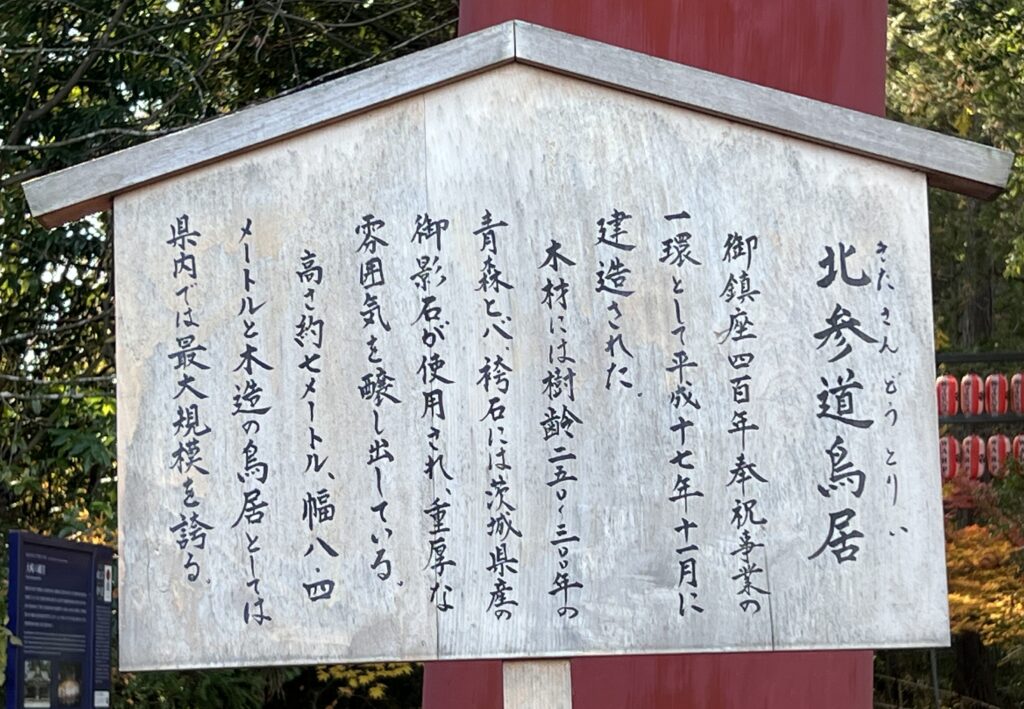 北参道鳥居
きたさんどうとりい
御鎮座四百年奉祝事業の
一環として平成十七年十一月に
建造された。
木材には樹齢二五〇〜三〇〇年の
青森ヒバ、袴石には茨城県産の
御影石が使用され、重厚な
雰囲気を醸し出している。
高さ約七メートル、幅八・四
メートルと木造の鳥居としては
県内では最大規模を誇る。